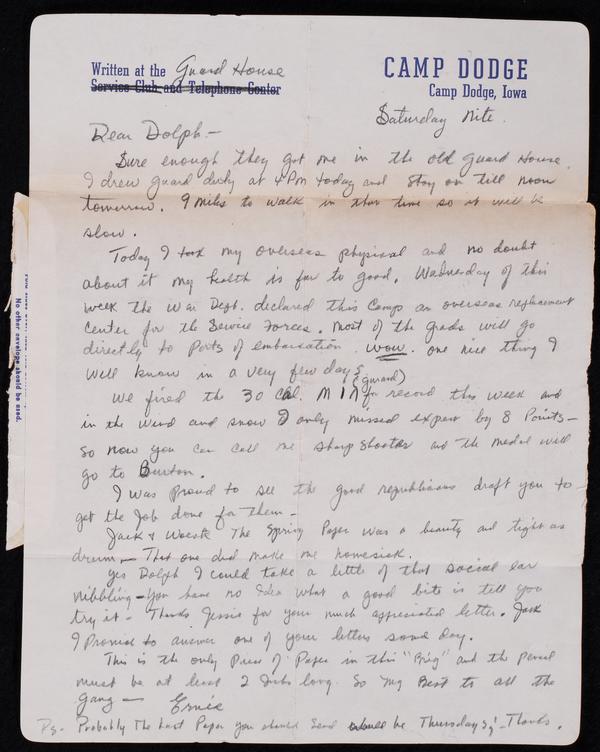 Written at the Guard House
Service Club and Telephone Center
CAMP DODGE
Camp Dodge, Iowa
Saturday Nite.
Dear Dolph –
Sure enough they got me in the old Guard House.
I drew guard duty at 4 PM today and stay on till noon
tomorrow. 9 miles to walk in that time so it will be
slow.
Today I took my overseas physical and no doubt
about it my health is far to good. Wednesday of this
week the War Dept. declared this Camp an overseas replacement
Center for the Service Forces. Most of the grads will go
directly to Ports of embarkation. Wow. one nice thing I
well know in a very few days
We fired the 30 Cal. M1 for record this week and
in the wind and snow I only missed expert by 8 Points –
so now you can call me sharp shooter and the medal will
go to Burton.
I was proud to see the good republicans draft you to
get the Job done for them –
Jack & The Spring Paper was a beauty and tight as
drum – That one did make me homesick.
Yes Dolph I could take a little of that social ear
nibbling – You have no Idea what a good bite is till you
try it – Thanks Jessie for your much appreciated letter. Jack
I Promise to answer one of your letters some day.
This is the only Piece of Paper in this "Brig" and the Pencil
must be at least 2 Inches long. So My Best to all the
Gang – Ernie
Ps – Probably The Last Paper you should Send be Thursdays! – Thanks.
No other envelope should be used.